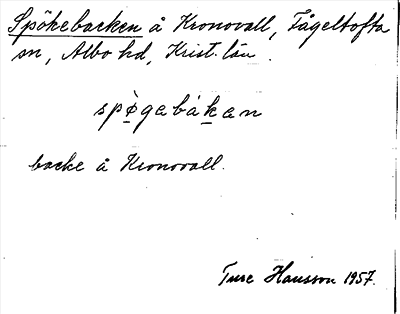 Spökebacken å Kronovall, Fågeltofta
sn, Albo hd, Krist. län.
spø̀gabákan
backe å Kronovall.
Ture Hansson 1957.